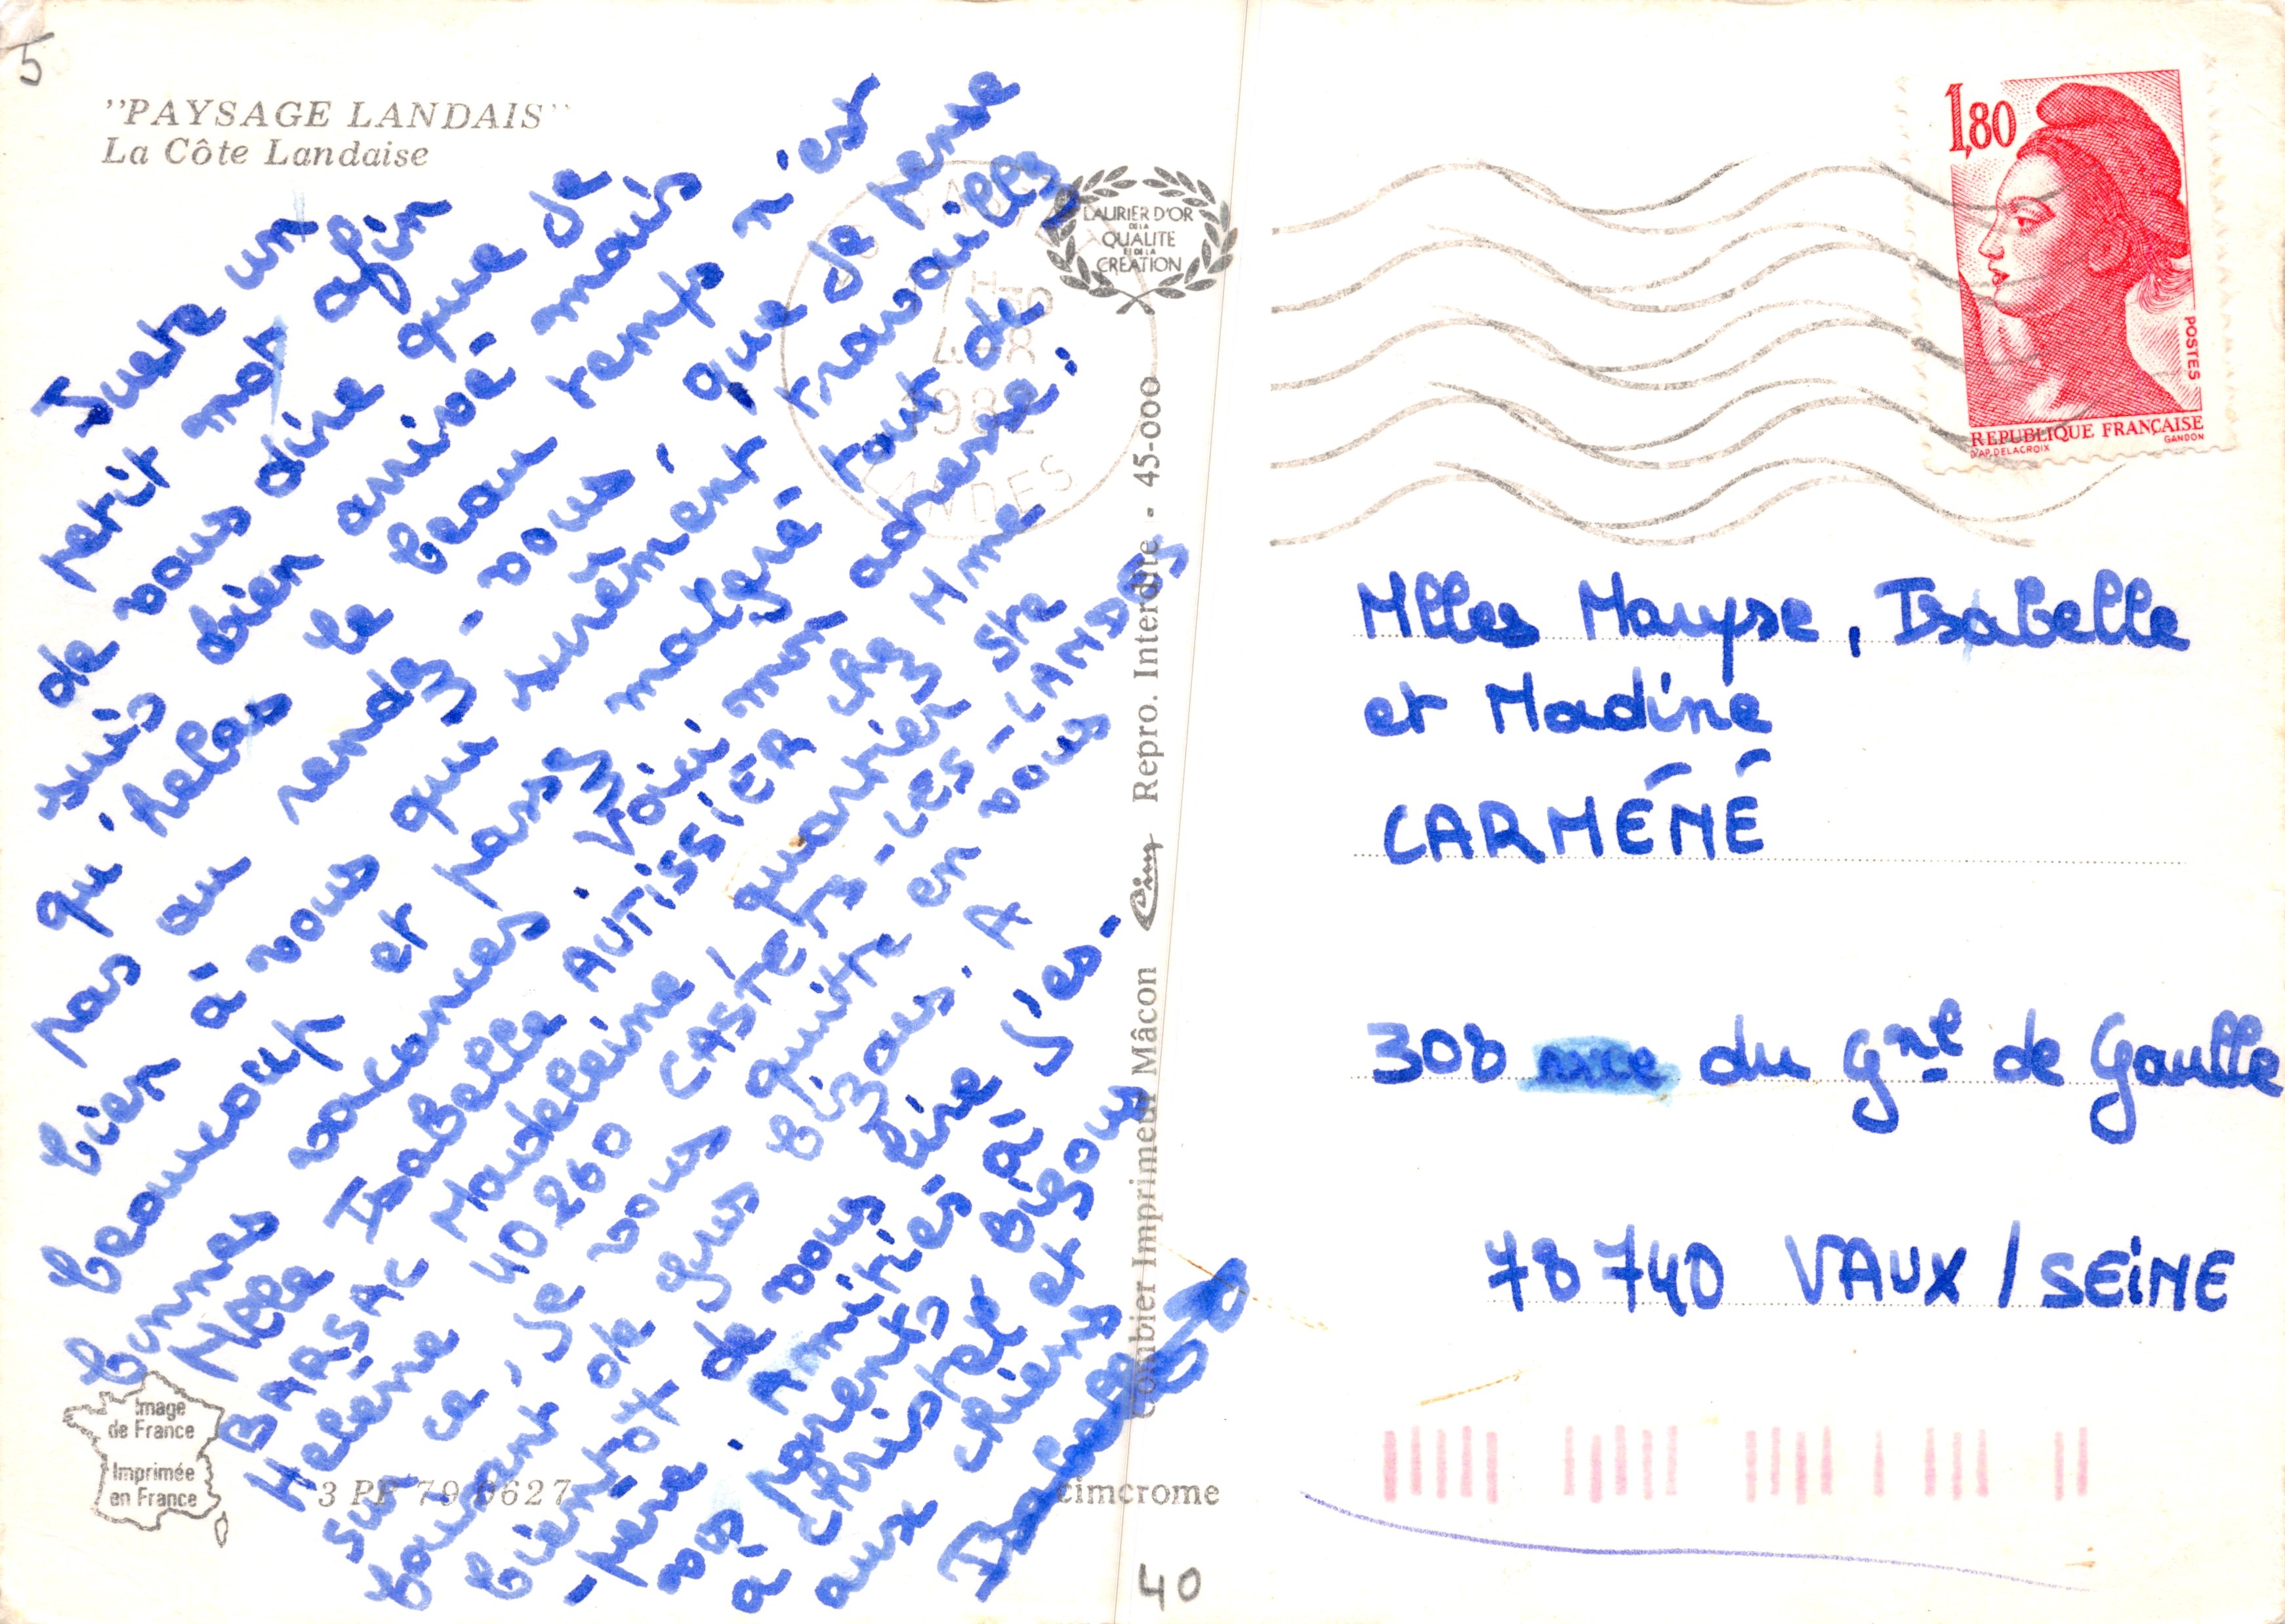 "PAYSAGE LANDAIS"
La Côte Landaise
5
Juste un
petit mot afin
de vous dire que je
suis bien arrivé mais
qu'helas le beau temps n'est
pas au rendez-vous, que je pense
bien à vous qui surément travaillez
beaucoup et passez malgré tout de
bonnes vacances. Voici mon adresse:
Mlle Isabelle AUTISSIER chez Mme
BARSAC Madeleine quartier Ste
Helène 40260 CASTETS-LES-LANDES
sur ce, je vous quitte en vous
faisant de gros bizous. A
bientot de vous lire j'es-
-père. Amitiés à
vos parents Bizous
à Christel et
aux chiens
Isabelle
Image
de France
Imprimée
en France
cimcrome
40
Combier Imprimeur Mâcon Cim Repro. Interdite - 45-000
LAURIER D'OR
DE LA
QUALITE
ET DE LA
CREATION
4-8
LANDES
1,80
POSTES
REPUBLIQUE FRANÇAISE
GANDON
D'AP. DELACROIX
Mlles Maryse, Isabelle
et Nadine
CARMÉNÉ
308 rue du Gnel de Gaulle
78740 VAUX / SEiNE